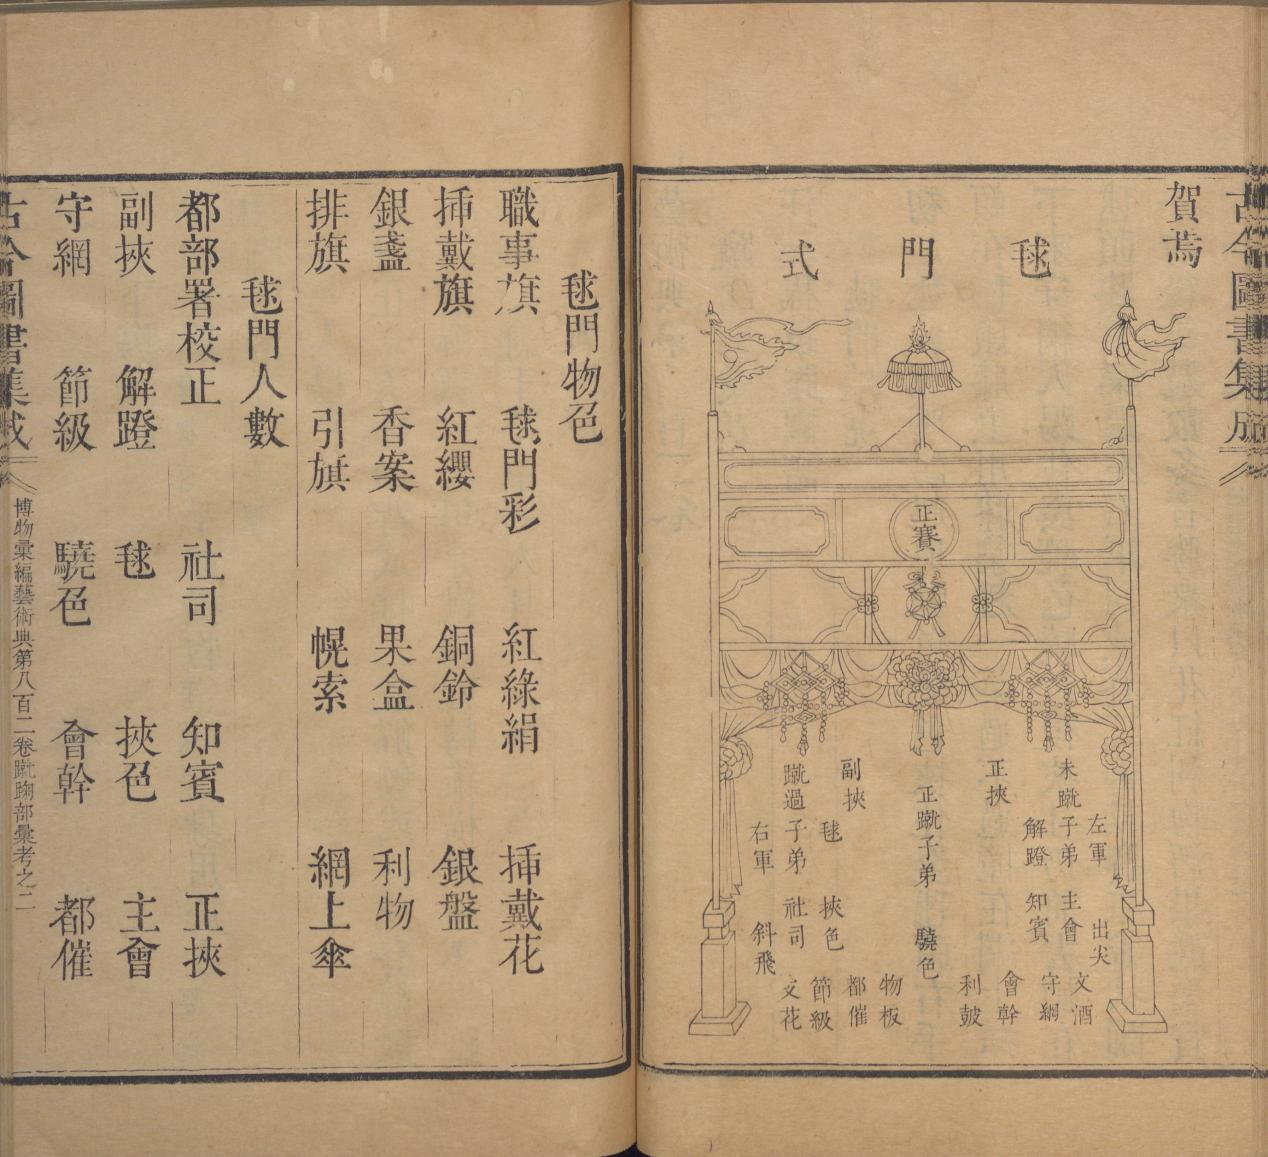 古今圖書集成
賀焉
毬門式
正賽
左軍 出尖
未蹴子弟 主會 文酒
解蹬 知賓 守網
正挾 會幹
利鼓
正蹴子弟 驍色
物板
副挾 都催
毬 挾色 節級
蹴過子弟 社司 文花
右軍 斜飛
毬門物色
職事旗 毬門彩 紅綠絹 揷戴花
揷戴旗 紅纓 銅鈴 銀盤
銀盞 香案 果盒 利物
排旗 引旗 幌索 網上傘
毬門人數
都部署校正 社司 知賓 正挾
副挾 解蹬 毬 挾色 主會
守網 節級 驍色 會幹 都催
古今圖書集成 博物彙編藝術典第八百二卷蹴踘部彙考之二